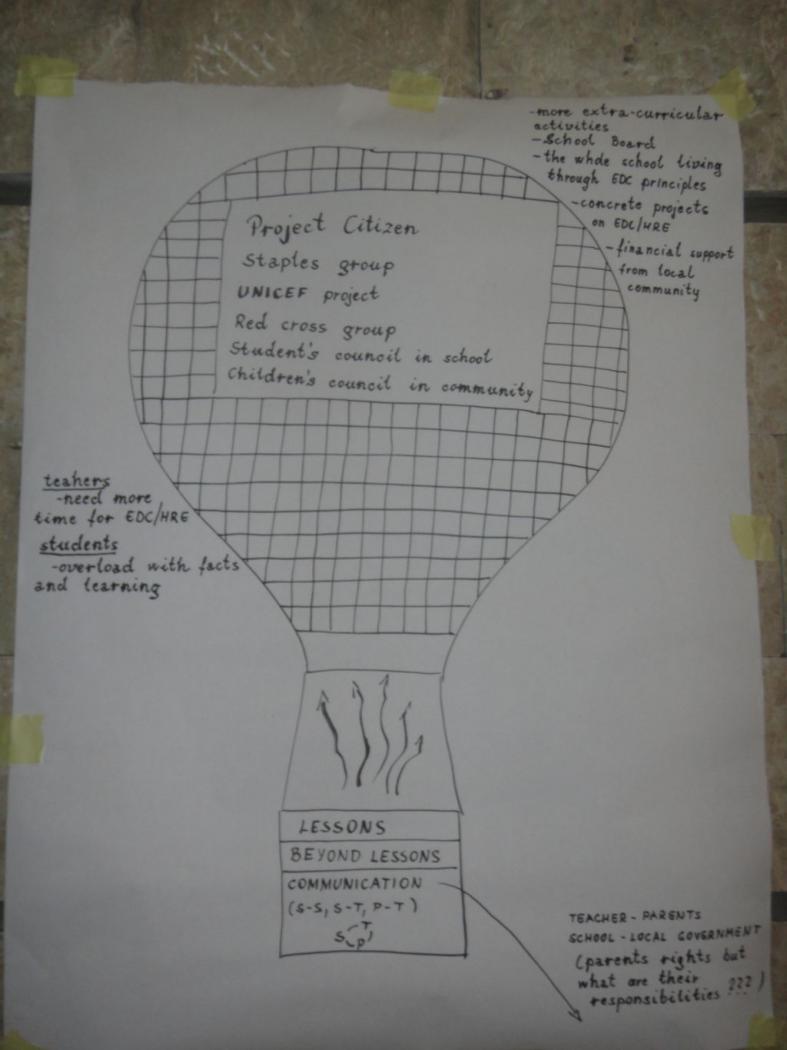 -more extra-curricular
activities
-School Board
-the whole school living
through EDC principles
-concrete projects
on EDC/HRE
-financial support
from local
community
Project Citizen
Staples group
UNICEF project
Red cross group
Student's council in school
Children's council in community
teahers
-need more
time for EDC/HRE
students
-overload with facts
and learning
LESSONS
BEYOND LESSONS
COMMUNICATION
(S-S, S-T, P-T)
S T
P
TEACHER - PARENTS
SCHOOL - LOCAL GOVERNMENT
(parents rights but
what are their
responsibilities ???)